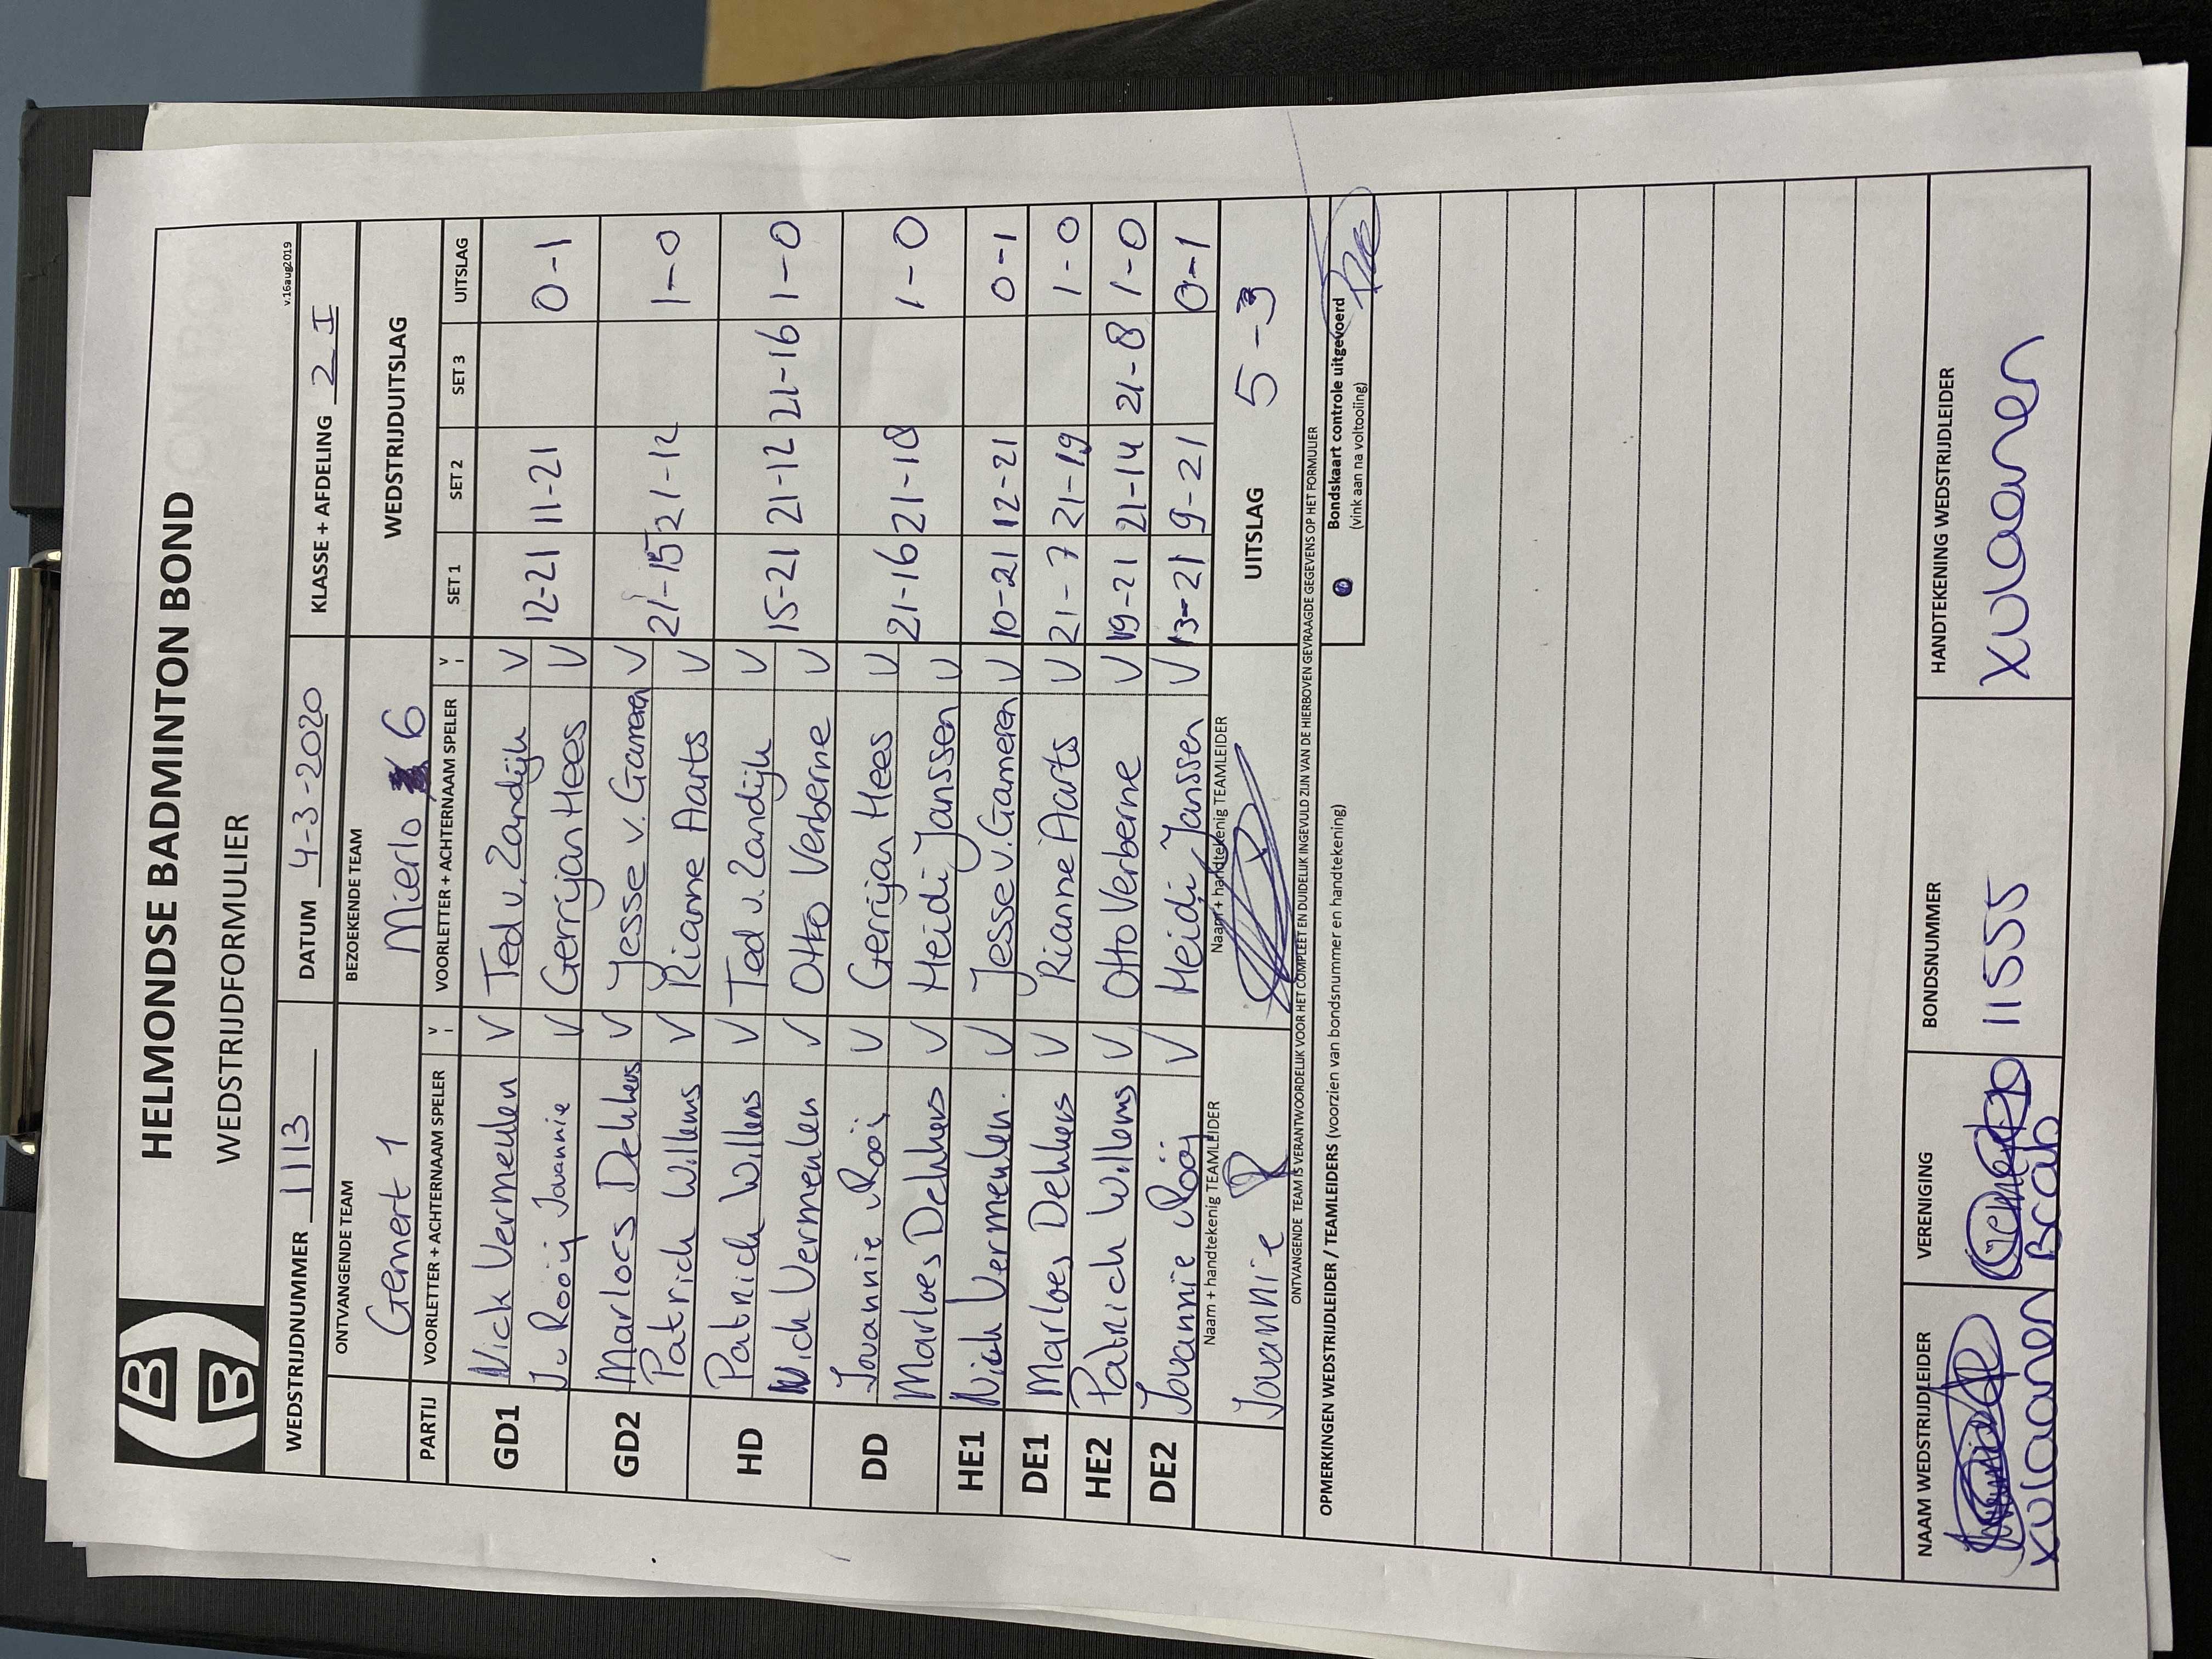 HELMONDSE BADMINTON BOND
WEDSTRIJDFORMULIER
v.16aug2019
WEDSTRIJDNUMMER 1113 DATUM 4-3-2020 KLASSE + AFDELING 2 I
ONTVANGENDE TEAM BEZOEKENDE TEAM WEDSTRIJDUITSLAG
Gemert 1 Mierlo 6
PARTIJ VOORLETTER + ACHTERNAAM SPELER V VOORLETTER + ACHTERNAAM SPELER V SET 1 SET 2 SET 3 UITSLAG
GD1 Nick Vermeulen V Ted v. Zandijk V 12-21 11-21 0-1
J. v Rooij Jovannie V Gerrijan Hees V
GD2 Marloes Dekkers V Jesse v. Gameren V 21-15 21-12 1-0
Patrick Willems V Rianne Aarts V
HD Patrick Willems V Ted v. Zandijk V 15-21 21-12 21-16 1-0
Nick Vermeulen V Otto Verberne V
DD Jovannie v Rooij V Gerrijan Hees V 21-16 21-18 1-0
Marloes Dekkers V Heidi Janssen V
HE1 Nick Vermeulen. V Jesse v. Gameren V 10-21 12-21 0-1
DE1 Marloes Dekkers V Rianne Aarts V 21-7 21-19 1-0
HE2 Patrick Willems V Otto Verberne V 19-21 21-14 21-8 1-0
DE2 Jovannie v Rooij V Heidi Janssen V 13-21 9-21 0-1
Naam + handtekenig TEAMLEIDER Naam + handtekenig TEAMLEIDER UITSLAG 5-3
Jovannie
ONTVANGENDE TEAM IS VERANTWOORDELIJK VOOR HET COMPLEET EN DUIDELIJK INGEVULD ZIJN VAN DE HIERBOVEN GEVRAAGDE GEGEVENS OP HET FORMULIER
OPMERKINGEN WEDSTRIJDLEIDER / TEAMLEIDERS (voorzien van bondsnummer en handtekening)
Bondskaart controle uitgevoerd
(vink aan na voltooiing)
NAAM WEDSTRIJDLEIDER VERENIGING BONDSNUMMER HANDTEKENING WEDSTRIJDLEIDER
XVlaanen BCAB 11555 XVlaanen